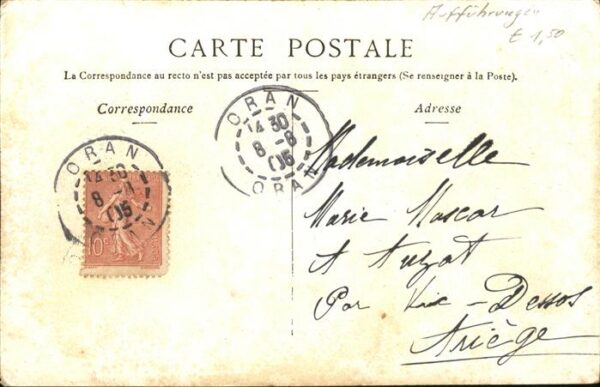 Aufführungen
€ 1,50
CARTE POSTALE
La Correspondance au recto n'est pas acceptée par tous les pays étrangers (Se renseigner à la Poste).
Correspondance
Adresse
ORAN
14 30
8 -8
05
ORAN
ORAN
14 30
8 -8
05
ORAN
10c
Mademoiselle
Marie Mascar
A Auzat
Par Vic-Dessos
Ariège